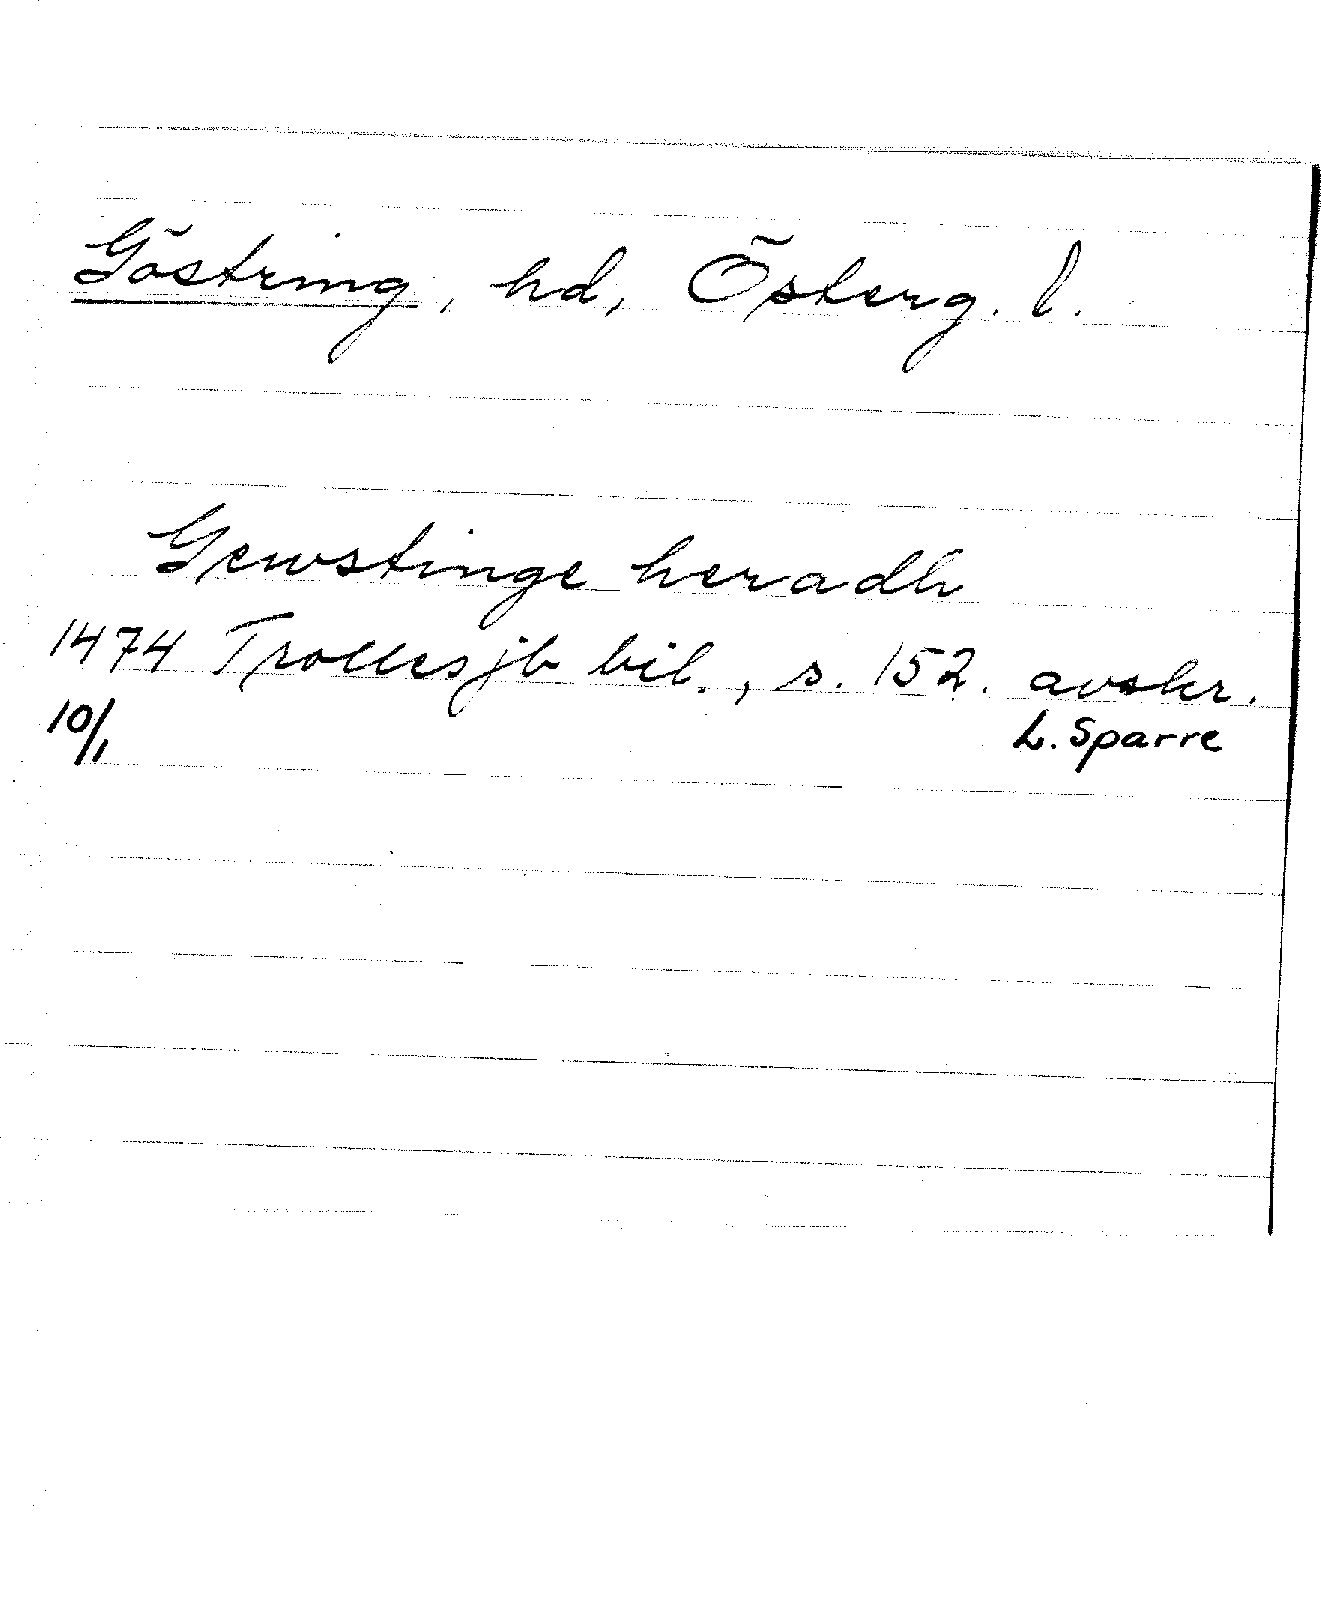 Göstring, hd, Österg. l.
Gewstinge heradh
1474 Trollesjb bil., s. 152. avskr.
10/1 L. Sparre